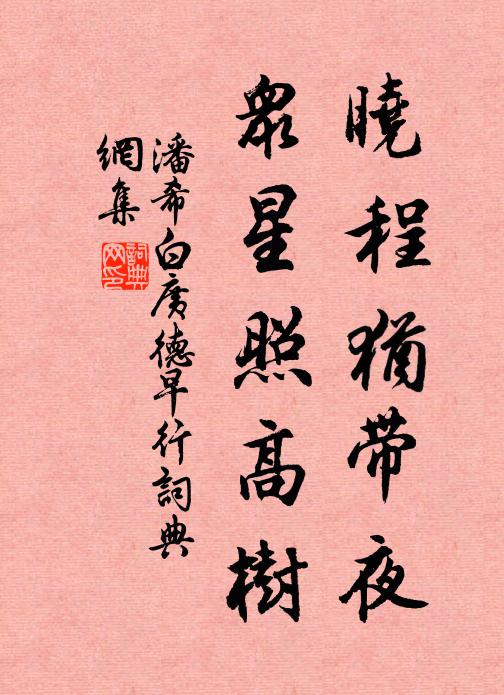 曉程猶帶夜
眾星照高樹
潘希白廣德早行詞典
網集
詞典
网印